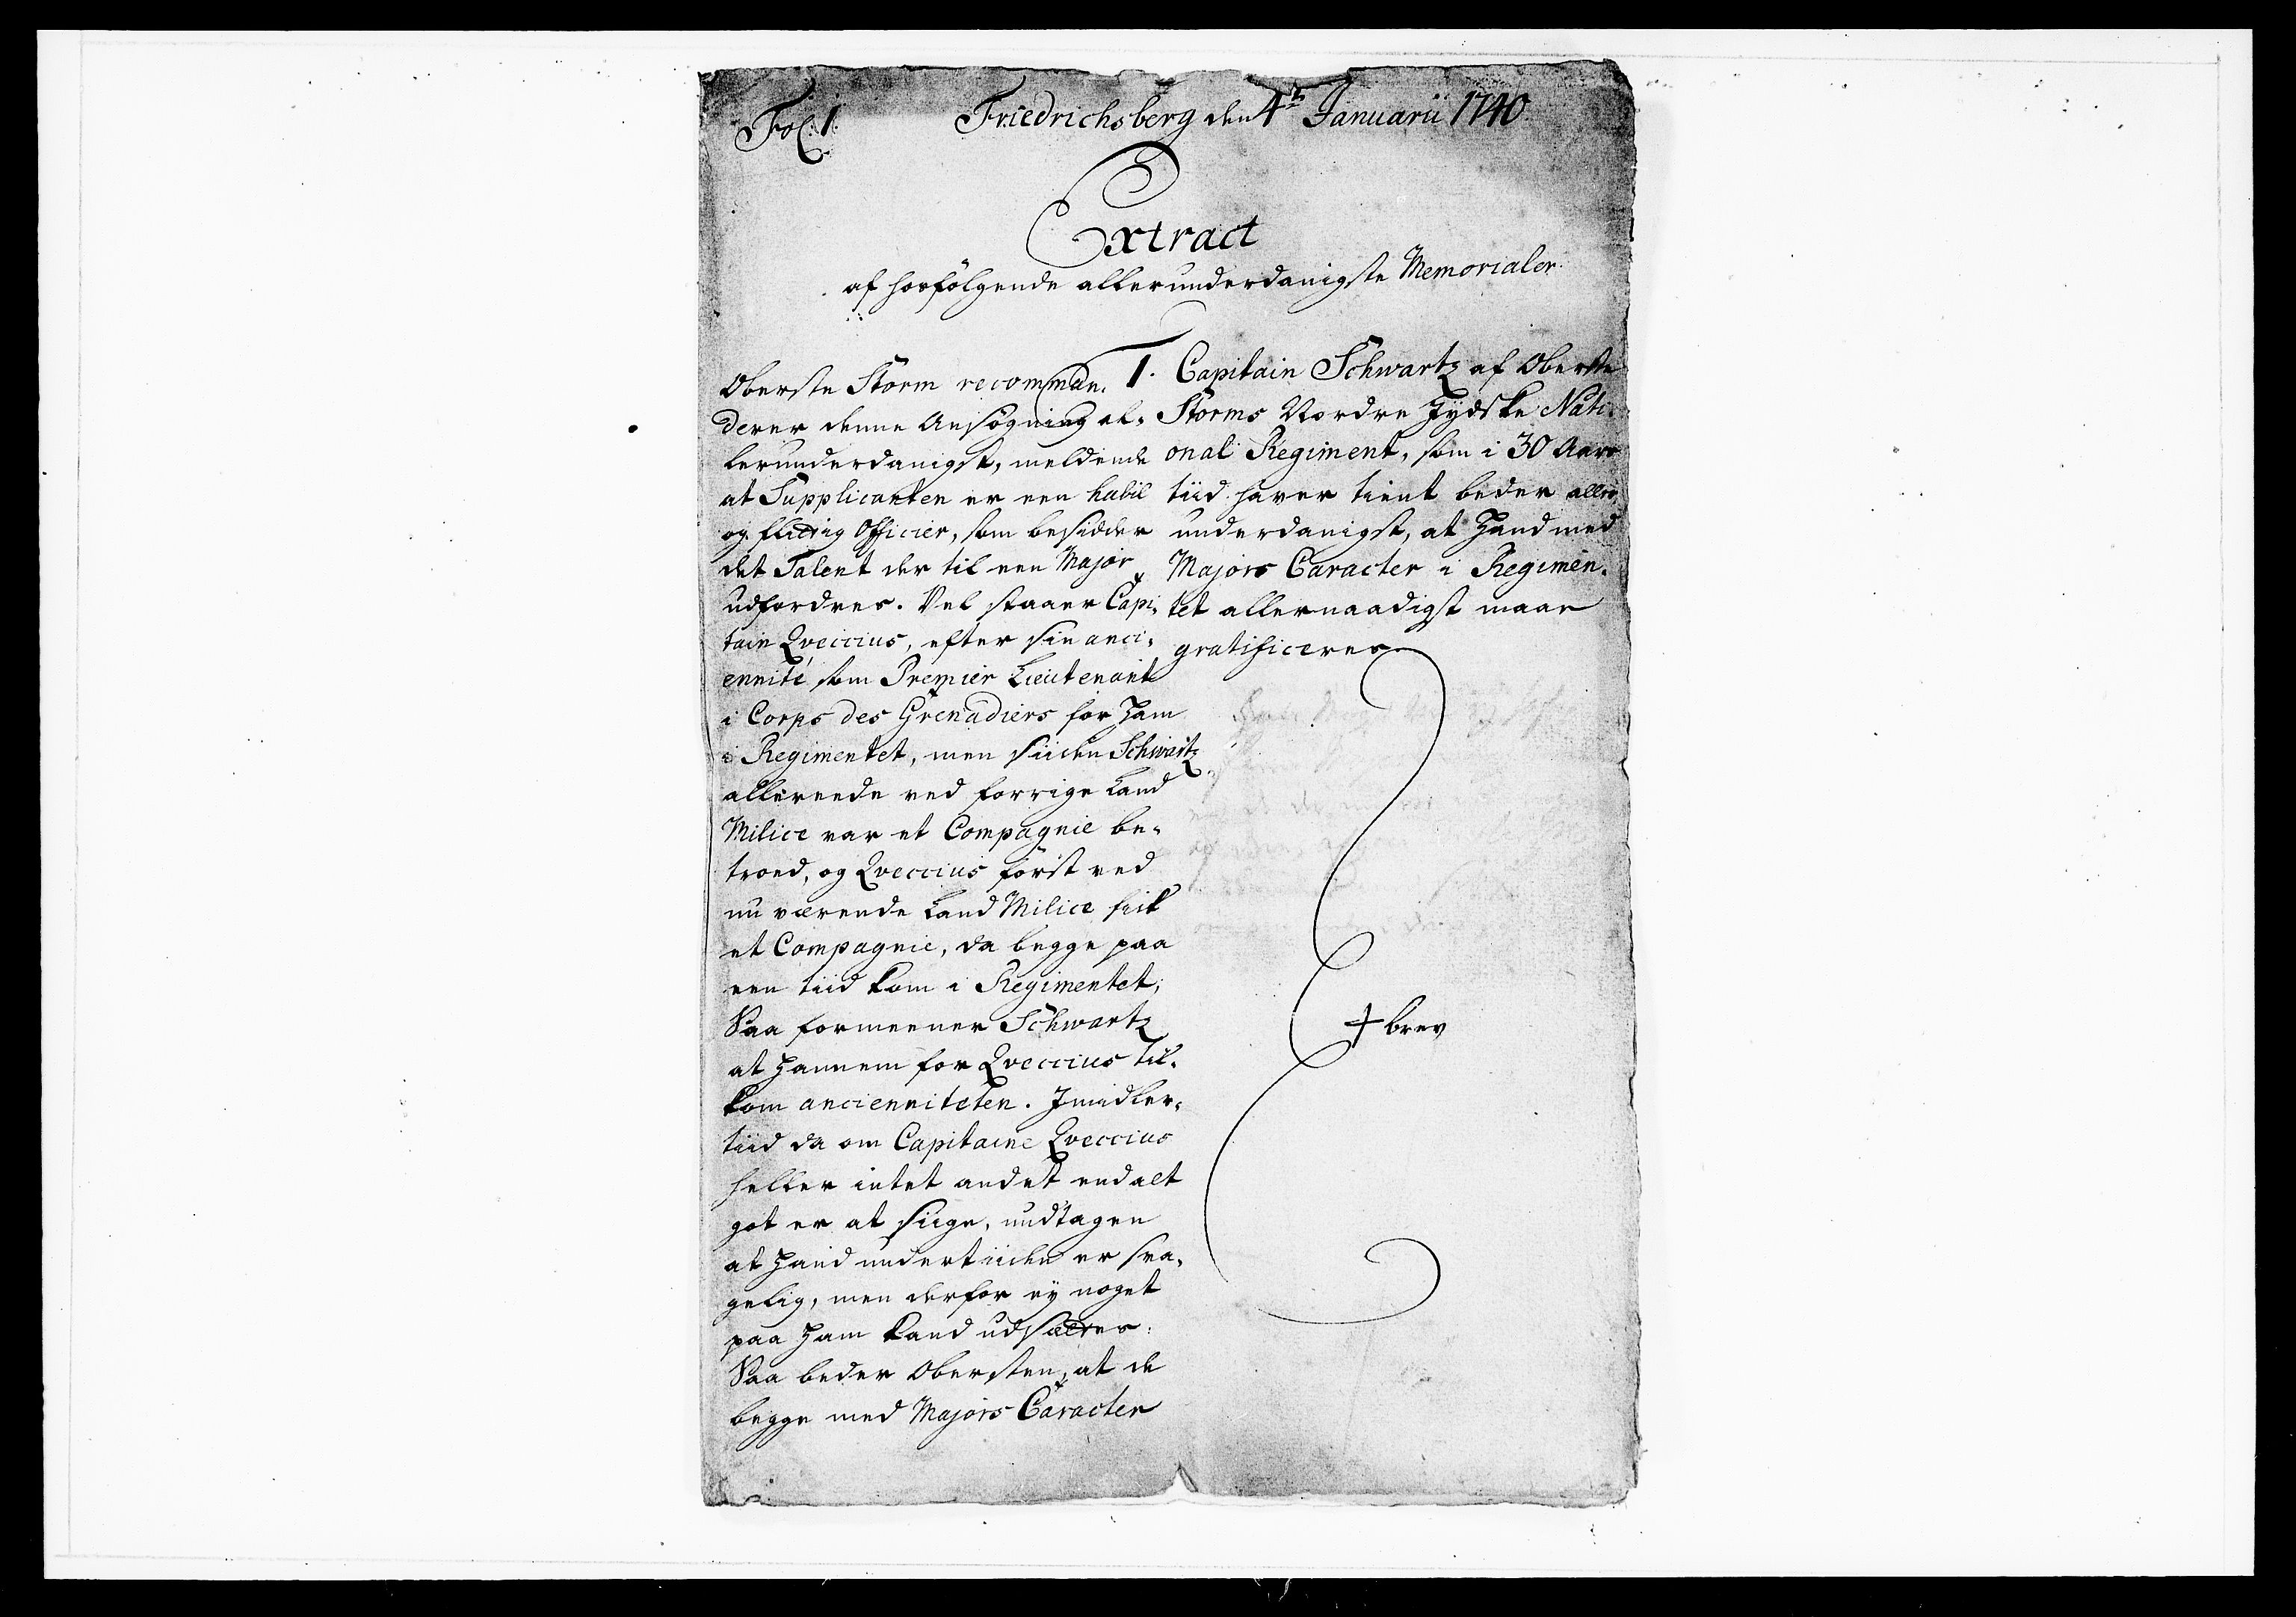 Fol: 1.
Friedrichsberg den 4de Januarii 1740
Extract
af hosfölgende allerunderdanigste Memorialer.
1. Capitain Schwartz af Oberste
Storms Nordre Jydske Nati-
onal Regiment, som i 30 Aars
tiid haver tient beder aller-
underdanigst, at Hand med
Majors Caracter i Regimen-
tet allernaadigst maae
gratificeres
Oberste Storm recomman-
derer denne Ansøgning al-
lerunderdanigst, meldende
at Supplicanten er een habil
og flittig Officier, som besidder
det Talent der til een Major
udfordres. Vel staaer Capi-
tain Qveccius, efter sin anci-
ennité som Premier Lieutenant
i Corps des Grenadiers for Ham
i Regimentet, men siiden Schwartz
allereede ved forrige Land
Milice var et Compagnie be-
troed, og Qveccius först ved
nu værende Land Milice fik
et Compagnie, da begge paa
een tiid kom i Regimentet;
Saa formeener Schwartz
at Hannem for Qveccius til-
kom ancienniteten. Imidler-
tiid da om Capitaine Qveccius
heller intet andet end alt
got er at siige, undtagen
at Hand undertiiden er sva-
gelig, men derfor ey noget
paa Ham kand udsættes.
Saa beder Obersten, at de
begge med Majors Caracter
+ brev